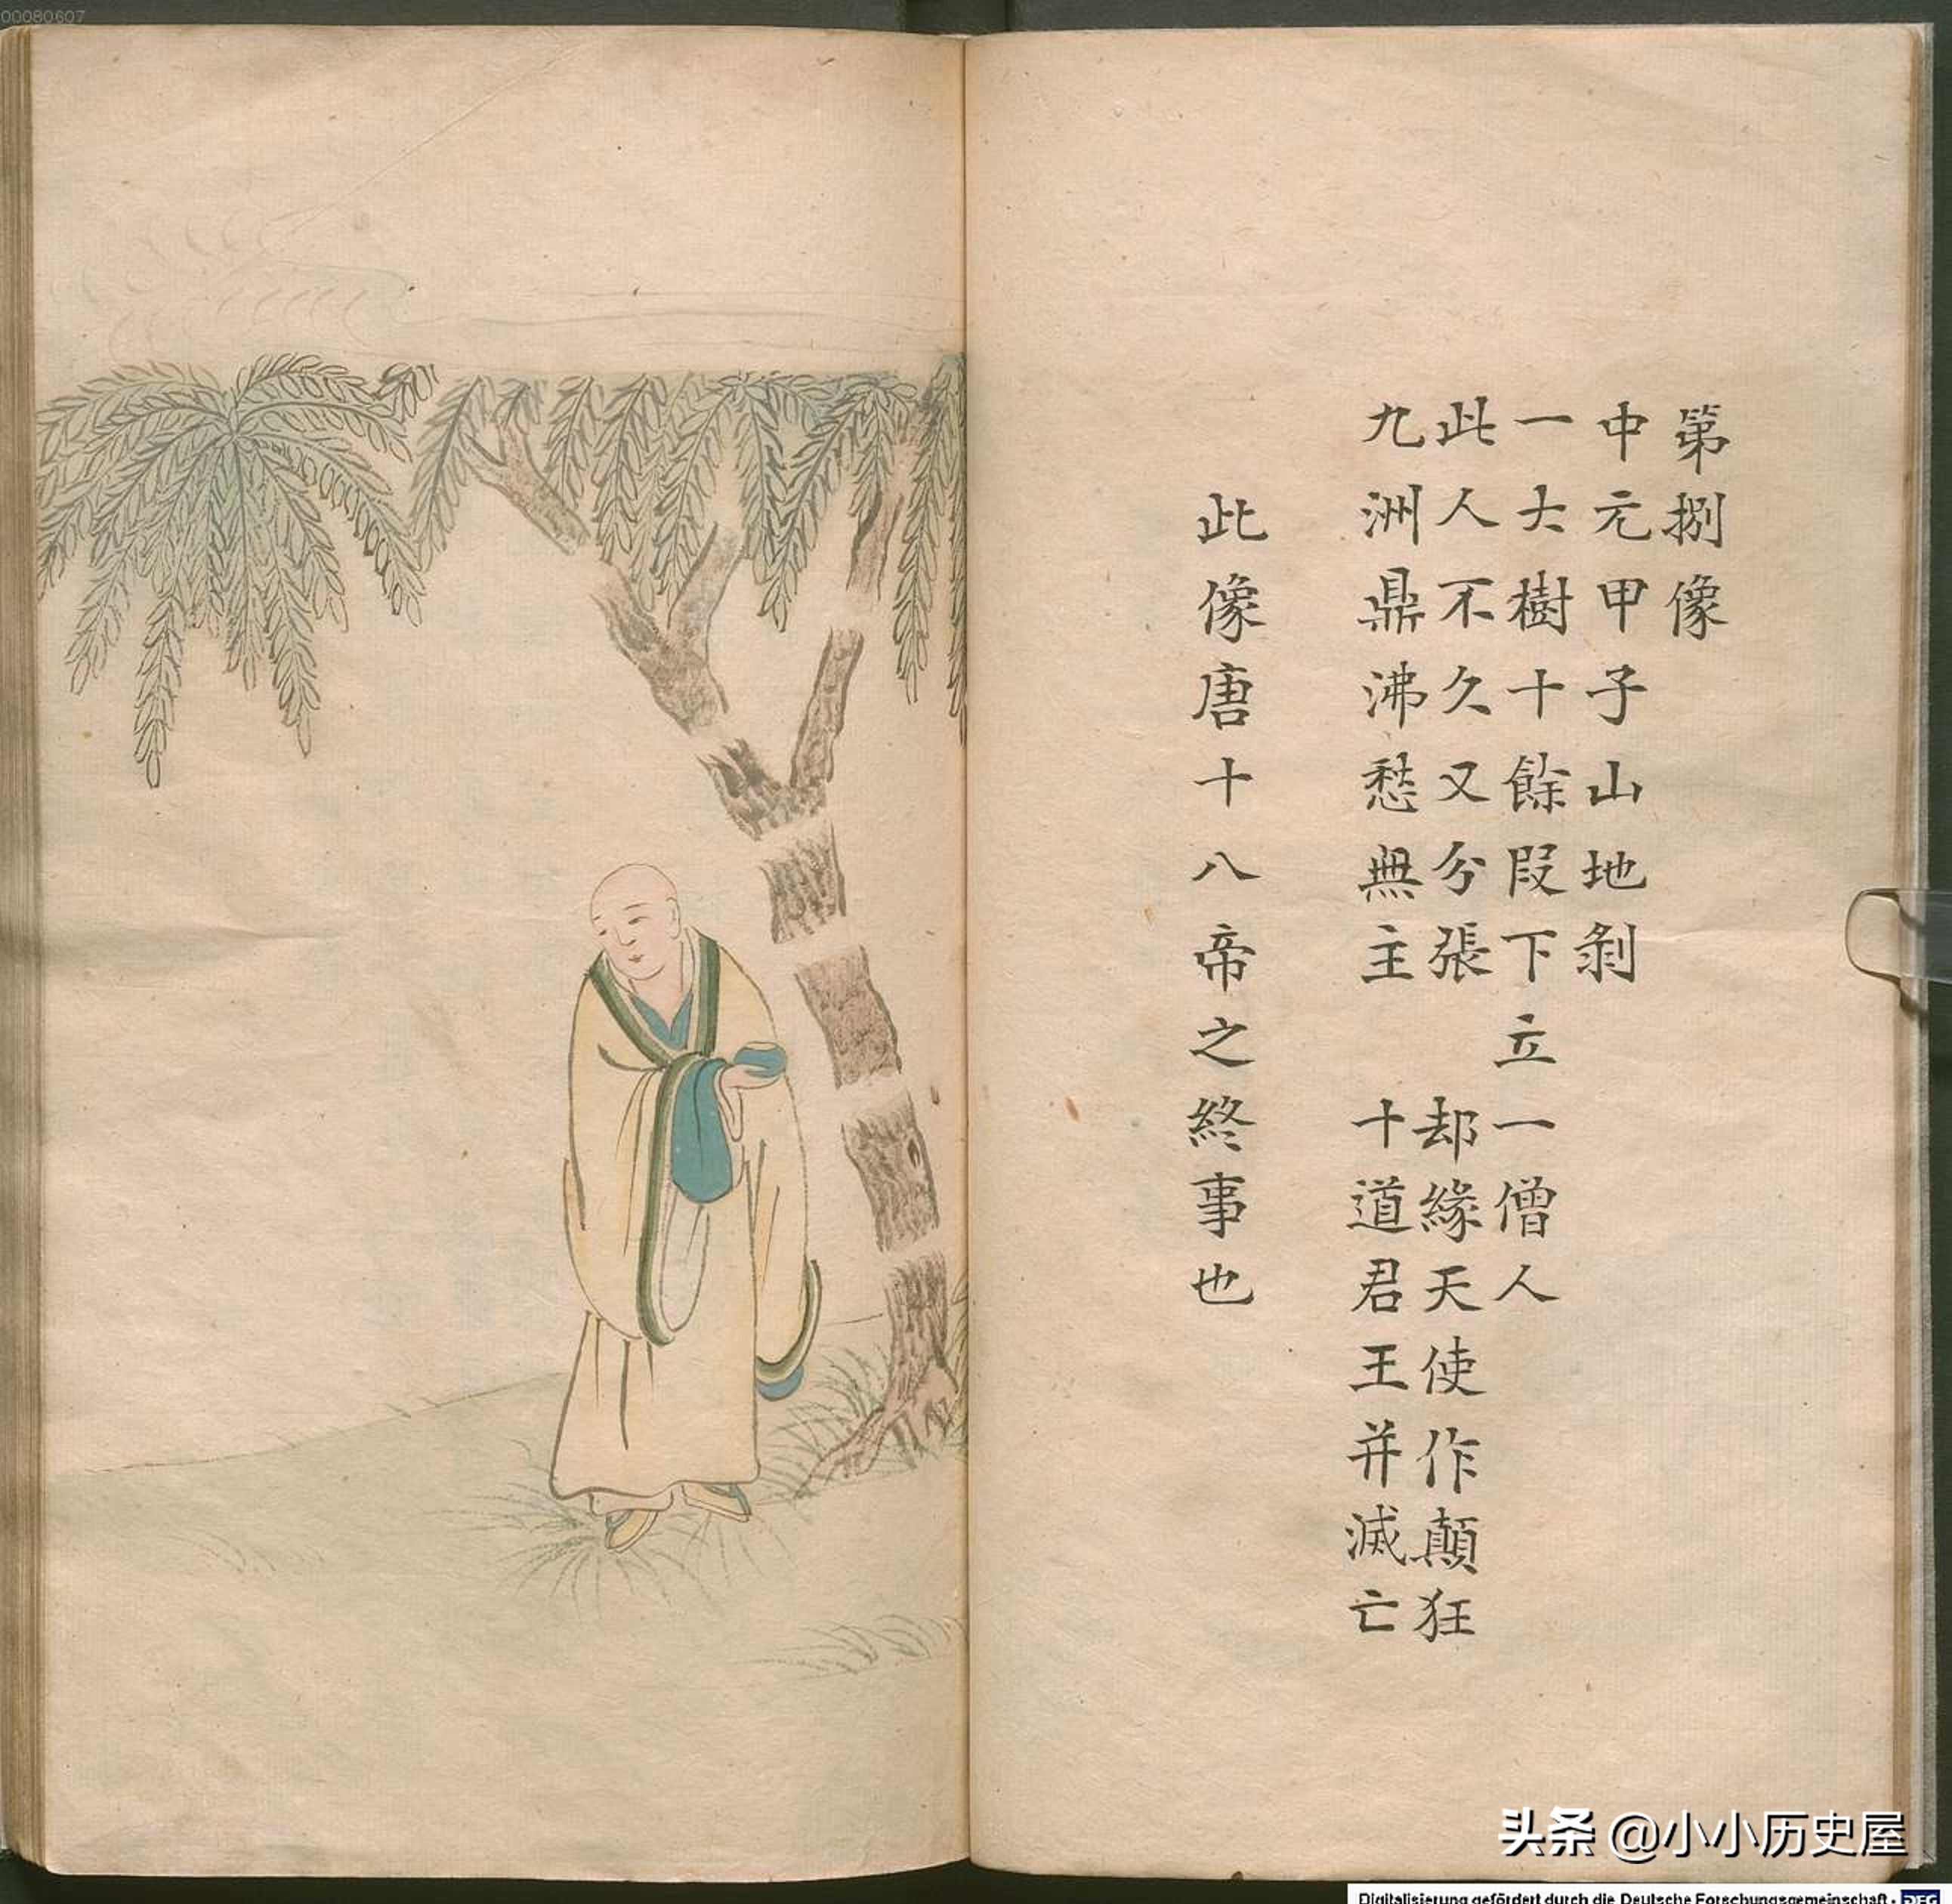 00080607
第捌像
中元甲子山地剝
一大樹十餘段下立一僧人
此人不久又分張 却緣天使作顛狂
九洲鼎沸愁無主 十道君王并滅亡
此像唐十八帝之終事也
头条 @小小历史屋
Digitalisierung gefördert durch die Deutsche Forschungsgemeinschaft - DFG